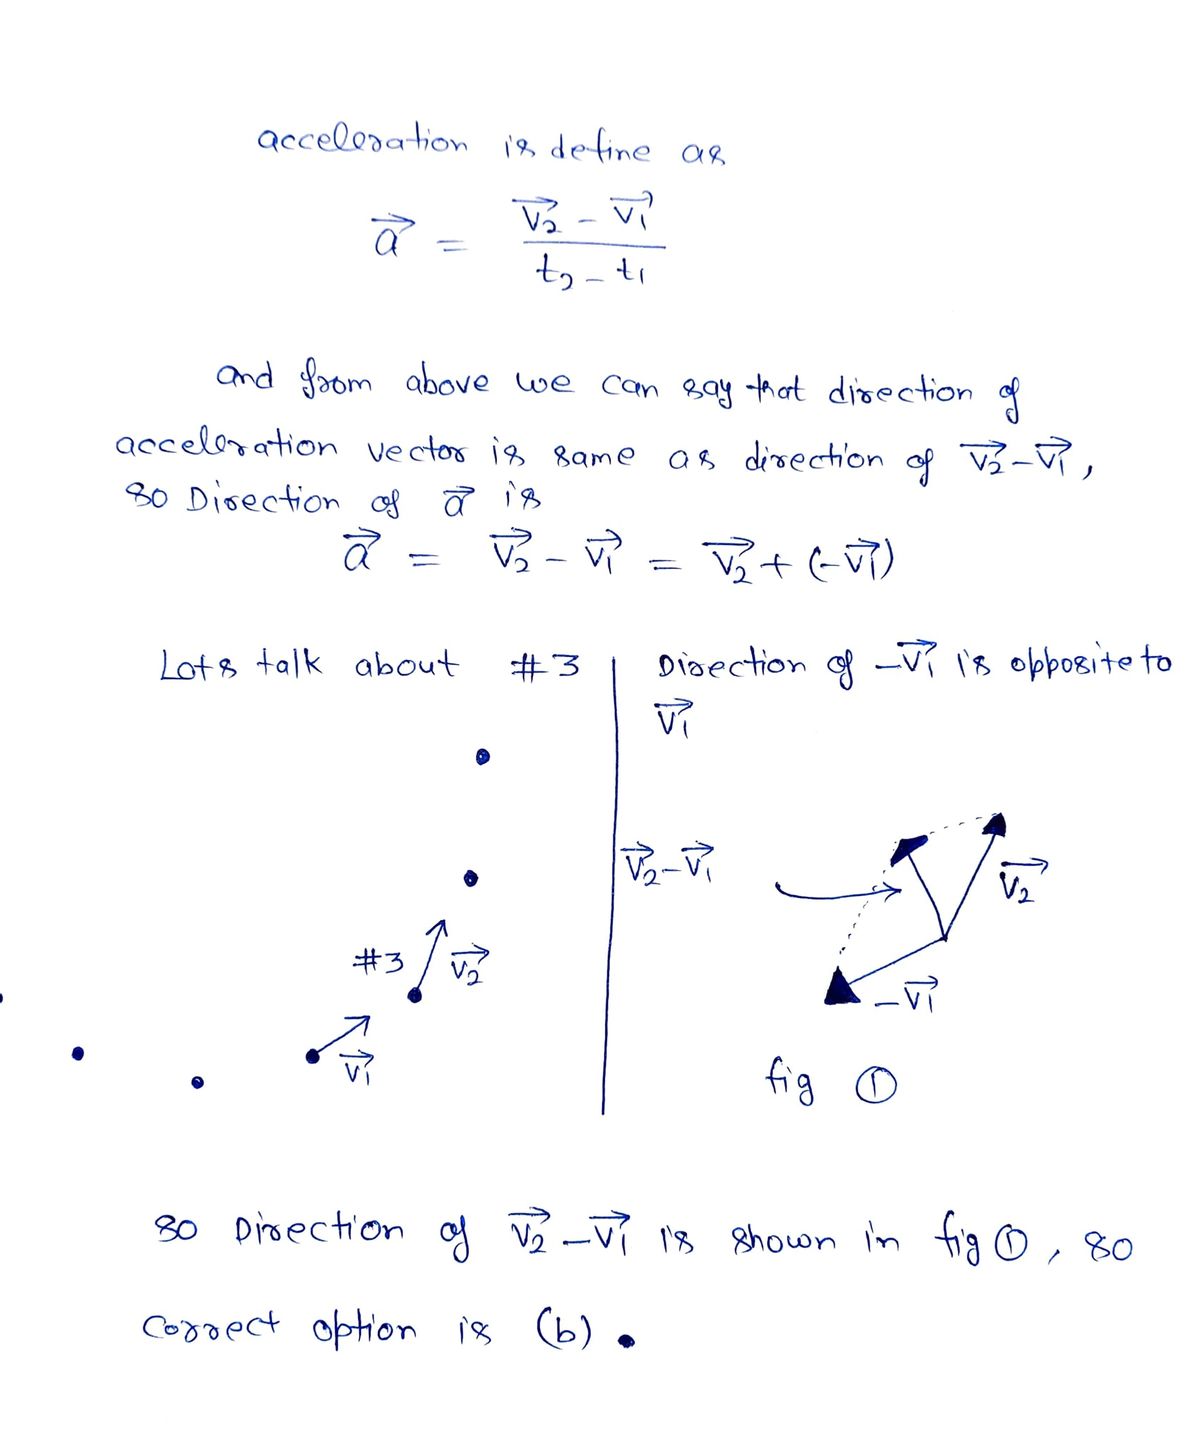 acceleration is define as
a⃗ = (v⃗₂ - v⃗₁) / (t₂ - t₁)
and from above we can say that direction of
acceleration vector is same as direction of v⃗₂-v⃗₁,
so Direction of a⃗ is
a⃗ = v⃗₂ - v⃗₁ = v⃗₂ + (-v⃗₁)
Lots talk about #3
Direction of -v⃗₁ is opposite to
v⃗₁
v⃗₂-v⃗₁
v⃗₂
#3
v⃗₂
-v⃗₁
v⃗₁
fig ①
so Direction of v⃗₂-v⃗₁ is shown in fig ①, so
correct option is (b).